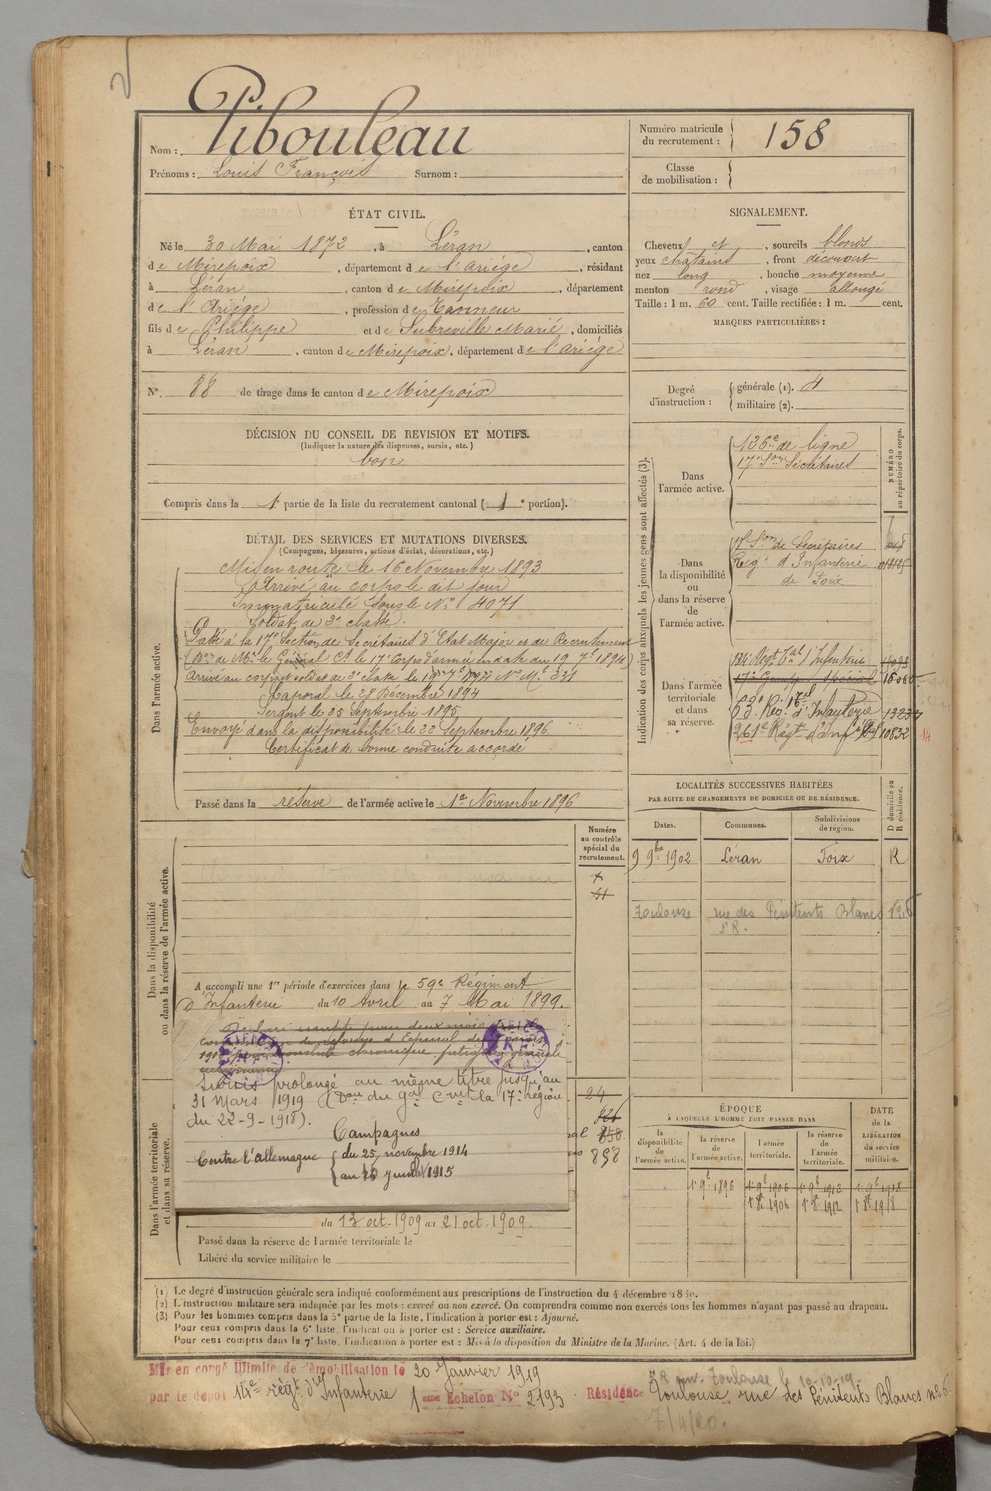 Pibouleau
Nom :
Prénoms : Louis François Surnom :
Numéro matricule
du recrutement : 158
Classe
de mobilisation :
ÉTAT CIVIL.
Né le 30 Mai 1872, à Léran, canton
de Mirepoix, département de l'ariège, résidant
à Léran, canton de Mirepoix, département
de l'Ariège, profession de Tanneur
fils de Philippe et de Subreville Marie, domiciliés
à Léran, canton de Mirepoix, département de l'ariège
N°. 88 de tirage dans le canton de Mirepoix
SIGNALEMENT.
Cheveux et, sourcils blonds
yeux chatains, front découvert
nez long, bouche moyenne
menton rond, visage allongé
Taille : 1 m. 60 cent. Taille rectifiée : 1 m. cent.
MARQUES PARTICULIÈRES :
Degré
d'instruction :
générale (1).
militaire (2).
DÉCISION DU CONSEIL DE REVISION ET MOTIFS.
(Indiquer la nature des dispenses, sursis, etc.)
bon
Compris dans la 1e partie de la liste du recrutement cantonal (1e portion).
DÉTAIL DES SERVICES ET MUTATIONS DIVERSES.
(Campagnes, blessures, actions d'éclat, décorations, etc.)
Dans l'armée active.
Mis en route le 16 Novembre 1893
Arrivé au corps le dit jour
Immatriculé sous le N° 4071
Soldat de 2e classe.
Passé à la 17e Section de Secrétaires d'Etat Major et de Recrutement
(Don de Mr le Général Ct le 17e Corps d'armée en date du 19 7e 1894)
Arrivé au corps et soldat de 2e classe le 19 7e 1894 N° Mle 331
Caporal le 28 Décembre 1894
Sergent le 25 Septembre 1895
Envoyé dans la disponibilité le 22 Septembre 1896
Certificat de bonne conduite accordé
Passé dans la réserve de l'armée active le 1er Novembre 1896
Indication des corps auxquels les jeunes gens sont affectés (3).
NUMÉRO
au répertoire du corps.
Dans
l'armée active.
126e de ligne
17e Son Secrétaires
Dans
la disponibilité
ou
dans la réserve
de
l'armée active.
17e Son de Secrétaires
Régt d'Infanterie
de Foix
Dans l'armée
territoriale
et dans
sa réserve.
134e Régt Tal d'Infanterie
63e Rég. d'Infanterie
261e Régt d'Inf. 10832
LOCALITÉS SUCCESSIVES HABITÉES
PAR SUITE DE CHANGEMENTS DE DOMICILE OU DE RÉSIDENCE.
D domicile ou
R résidence.
Dates. Communes. Subdivisions
de région.
9 9bre 1902 Léran Foix R
Toulouse rue des Pénitents Blancs N° 6
Dans la disponibilité
ou dans la réserve de l'armée active.
Numéro
au contrôle
spécial du
recrutement.
A accompli une 1re période d'exercices dans le 59e Régiment
d'Infanterie du 10 Avril au 7 Mai 1899.
Sursis prolongé au même titre jusqu'au
31 Mars 1919 (Don du gal Cmt la 17e Région
du 22-9-1918).
Campagnes
Contre l'allemagne { du 25 novembre 1914
au 10 juillet 1915
24
858.
898
Dans l'armée territoriale
et dans sa réserve.
du 13 oct. 1909 au 21 oct. 1909.
Passé dans la réserve de l'armée territoriale le
Libéré du service militaire le
ÉPOQUE
À LAQUELLE L'HOMME DOIT PASSER DANS
DATE
de la
LIBÉRATION
du service
militaire.
la
disponibilité
de
l'armée active.
la réserve
de
l'armée active.
l'armée
territoriale.
la réserve
de
l'armée
territoriale.
1r 9e 1896 1r 9e 1906 1r 9e 1912 1r 9e 1918
1r 8e 1906 1r 8e 1912 1r 8e 1918
(1) Le degré d'instruction générale sera indiqué conformément aux prescriptions de l'instruction du 4 décembre 1889.
(2) L'instruction militaire sera indiquée par les mots : exercé ou non exercé. On comprendra comme non exercés tous les hommes n'ayant pas passé au drapeau.
(3) Pour les hommes compris dans la 5e partie de la liste, l'indication à porter est : Ajourné.
Pour ceux compris dans la 6e liste, l'indication à porter est : Service auxiliaire.
Pour ceux compris dans la 7e liste, l'indication à porter est : Mis à la disposition du Ministre de la Marine. (Art. 4 de la loi.)
Mis en congé illimité de démobilisation le 20 Janvier 1919
par le dépôt 14e régt d'Infanterie 1ème Echelon N° 2193 - Résidence Toulouse rue des Pénitents Blancs n° 6
Toulouse le 10-10-19-
7/4/20.